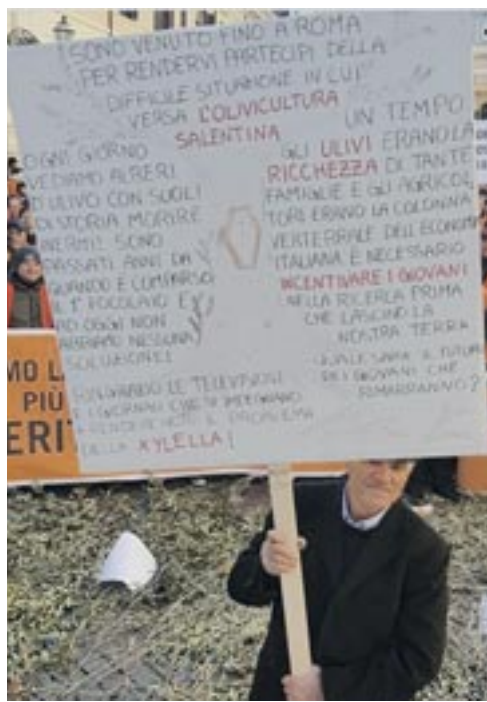 SONO VENUTO FINO A ROMA
PER RENDERVI PARTECIPI DELLA
DIFFICILE SITUAZIONE IN CUI
VERSA L'OLIVICULTURA
SALENTINA
OGNI GIORNO
VEDIAMO ALBERI
D'ULIVO CON SUOLI
DI STORIA MORIRE
INERMI! SONO
PASSATI ANNI DA
QUANDO È COMPARSO
IL 1° FOCOLAIO E
AD OGGI NON
ABBIAMO NESSUNA
SOLUZIONE!
UN TEMPO
GLI ULIVI ERANO LA
RICCHEZZA DI TANTE
FAMIGLIE E GLI AGRICOL
TORI ERANO LA COLONNA
VERTEBRALE DELL'ECONOMIA
ITALIANA È NECESSARIO
INCENTIVARE I GIOVANI
NELLA RICERCA PRIMA
CHE LASCINO LA
NOSTRA TERRA
QUALE SARÀ IL FUTURO
DEI GIOVANI CHE
RIMARRANNO?
RINGRAZIO LE TELEVISIONI
E I GIORNALI CHE SI IMPEGNANO
IL PROBLEMA
DELLA XYLELLA!
MO L
PIÙ
ERIT